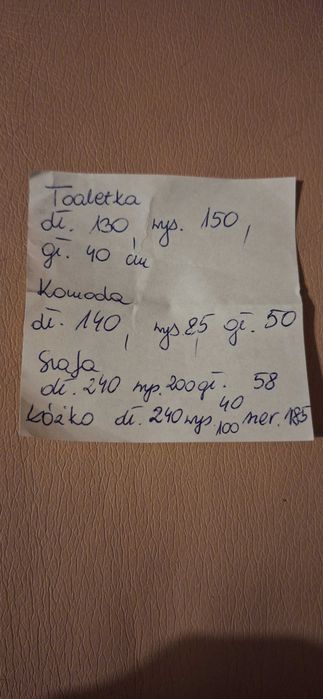 Toaletka
dł. 130, wys. 150,
gł. 40 cm
Komoda
dł. 140, wys 85, gł. 50
Szafa
dł. 240 wys. 200 gł. 58
Łóżko dł. 240 wys. 40 100 szer. 185